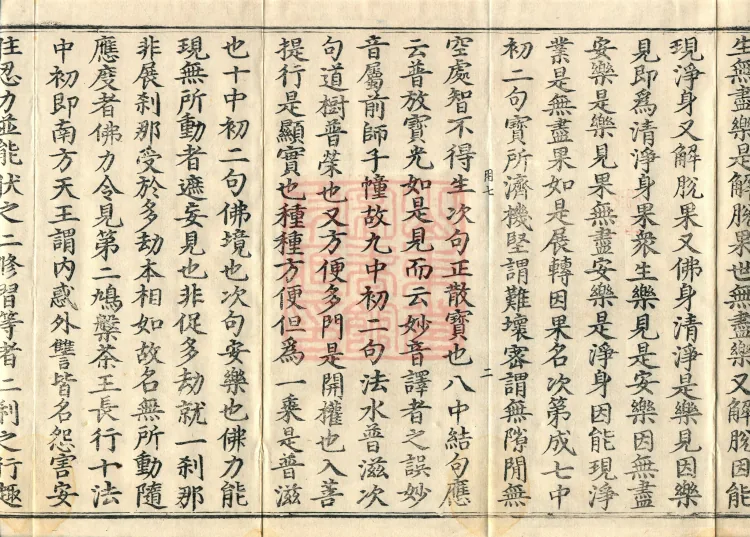 生無盡樂是解脫果世無盡樂又解脫因能
現淨身又解脫果又佛身清淨是樂見因樂
見即爲清淨身果衆生樂見是安樂因無盡
安樂是樂見果無盡安樂是淨身因能現淨
業是無盡果如是展轉因果名次第成七中
初二句寶所濟機堅謂難壞密謂無隙閒無
用七
二
空處智不得生次句正散寶也八中結句應
云普放寶光如是見而云妙音譯者之誤妙
音屬前師子幢故九中初二句法水普滋次
句道樹普榮也又方便多門是開權也入菩
提行是顯實也種種方便但爲一乘是普滋
也十中初二句佛境也次句安樂也佛力能
現無所動者遮妄見也非促多劫就一剎那
非展剎那受於多劫本相如故名無所動隨
應度者佛力令見第二鳩槃荼王長行十法
中初即南方天王謂內惑外讐皆名怨害安
住忍力並能伏之二修習等者二利之行趣